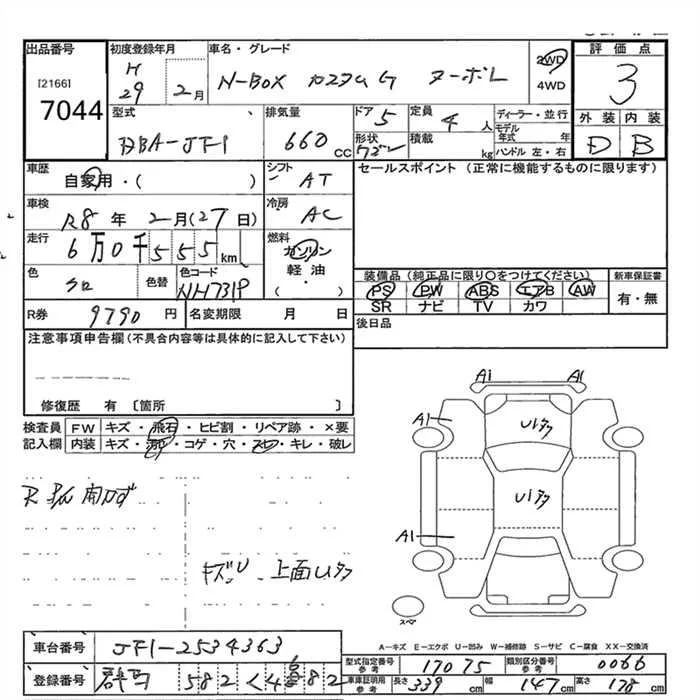 出品番号 初度登録年月 車名・グレード 評価点
[2166] H 29年 2月 N-BOX カスタムG ターボL 2WD 3
7044 4WD
型式 排気量 ドア 定員 ディーラー・並行 外装 内装
DBA-JF1 660cc 5 4人 モデル年式 年 D B
形状 積載 kg ハンドル 左・右
車歴 シフト セールスポイント(正常に機能するものに限ります)
自家用・( ) AT
車検 冷房
R8年 2月(27日) AC
走行 燃料
6万0千555km ガソリン
色 色替 色コード 軽油 装備品(純正品に限り○をつけてください) 新車保証書
クロ NH731P ・( ) PS PW ABS エアB AW 有・無
SR ナビ TV カワ
R券 9790円 名変期限 月 日 後日品
注意事項申告欄(不具合内容等は具体的に記入して下さい)
修復歴 有 〔箇所 〕
検査員 FW キズ・飛石・ヒビ割・リペア跡・×要
記入欄 内装 キズ・汚れ・コゲ・穴・スレ・キレ・破レ
A1 A1
A1 U1多
U1多
A1
スペア
上面U1多
A-キズ E-エクボ U-凹み W-補修跡 S-サビ C-腐食 XX-交換済
車台番号 JF1-2534363
型式指定番号 参考 17075 類別区分番号 参考 0066
登録番号 群馬 582
車庫証明用 参考 長さ 339cm 幅 147cm 高さ 178cm